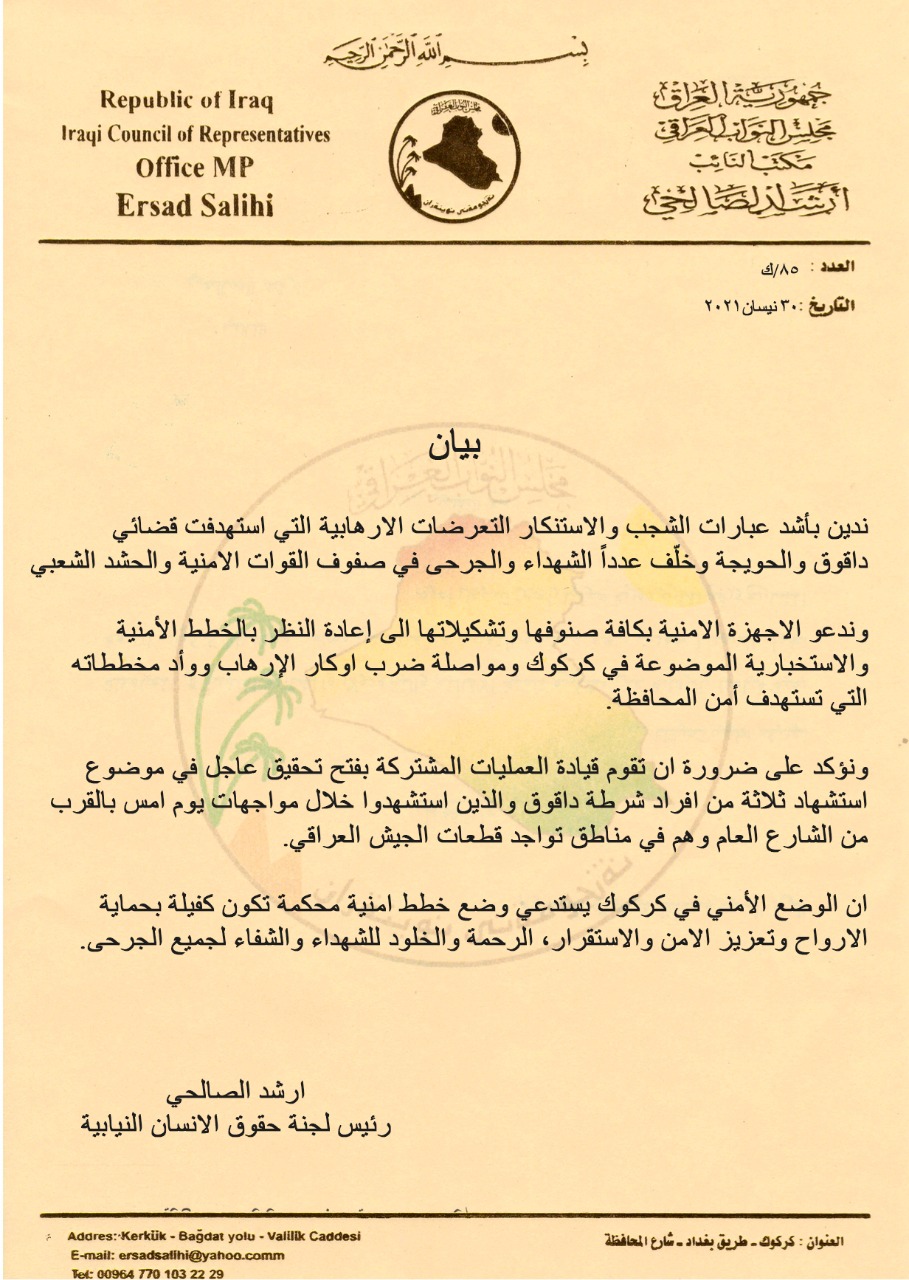 بسم الله الرحمن الرحيم
Republic of Iraq
Iraqi Council of Representatives
Office MP
Ersad Salihi
جمهورية العراق
مجلس النواب العراقي
مكتب النائب
أرشد الصالحي
مجلس النواب العراقي
العدد : ٨٥/ك
التاريخ : ٣٠ نيسان ٢٠٢١
بيان
مجلس النواب العراقي
ندين بأشد عبارات الشجب والاستنكار التعرضات الارهابية التي استهدفت قضائي
داقوق والحويجة وخلّف عدداً الشهداء والجرحى في صفوف القوات الامنية والحشد الشعبي
وندعو الاجهزة الامنية بكافة صنوفها وتشكيلاتها الى إعادة النظر بالخطط الأمنية
والاستخبارية الموضوعة في كركوك ومواصلة ضرب اوكار الإرهاب ووأد مخططاته
التي تستهدف أمن المحافظة.
ونؤكد على ضرورة ان تقوم قيادة العمليات المشتركة بفتح تحقيق عاجل في موضوع
استشهاد ثلاثة من افراد شرطة داقوق والذين استشهدوا خلال مواجهات يوم امس بالقرب
من الشارع العام وهم في مناطق تواجد قطعات الجيش العراقي.
ان الوضع الأمني في كركوك يستدعي وضع خطط امنية محكمة تكون كفيلة بحماية
الارواح وتعزيز الامن والاستقرار، الرحمة والخلود للشهداء والشفاء لجميع الجرحى.
ارشد الصالحي
رئيس لجنة حقوق الانسان النيابية
Addres: Kerkük - Bağdat yolu - Valilik Caddesi
E-mail: ersadsalihi@yahoo.comm
Tel: 00964 770 103 22 29
العنوان : كركوك - طريق بغداد - شارع المحافظة